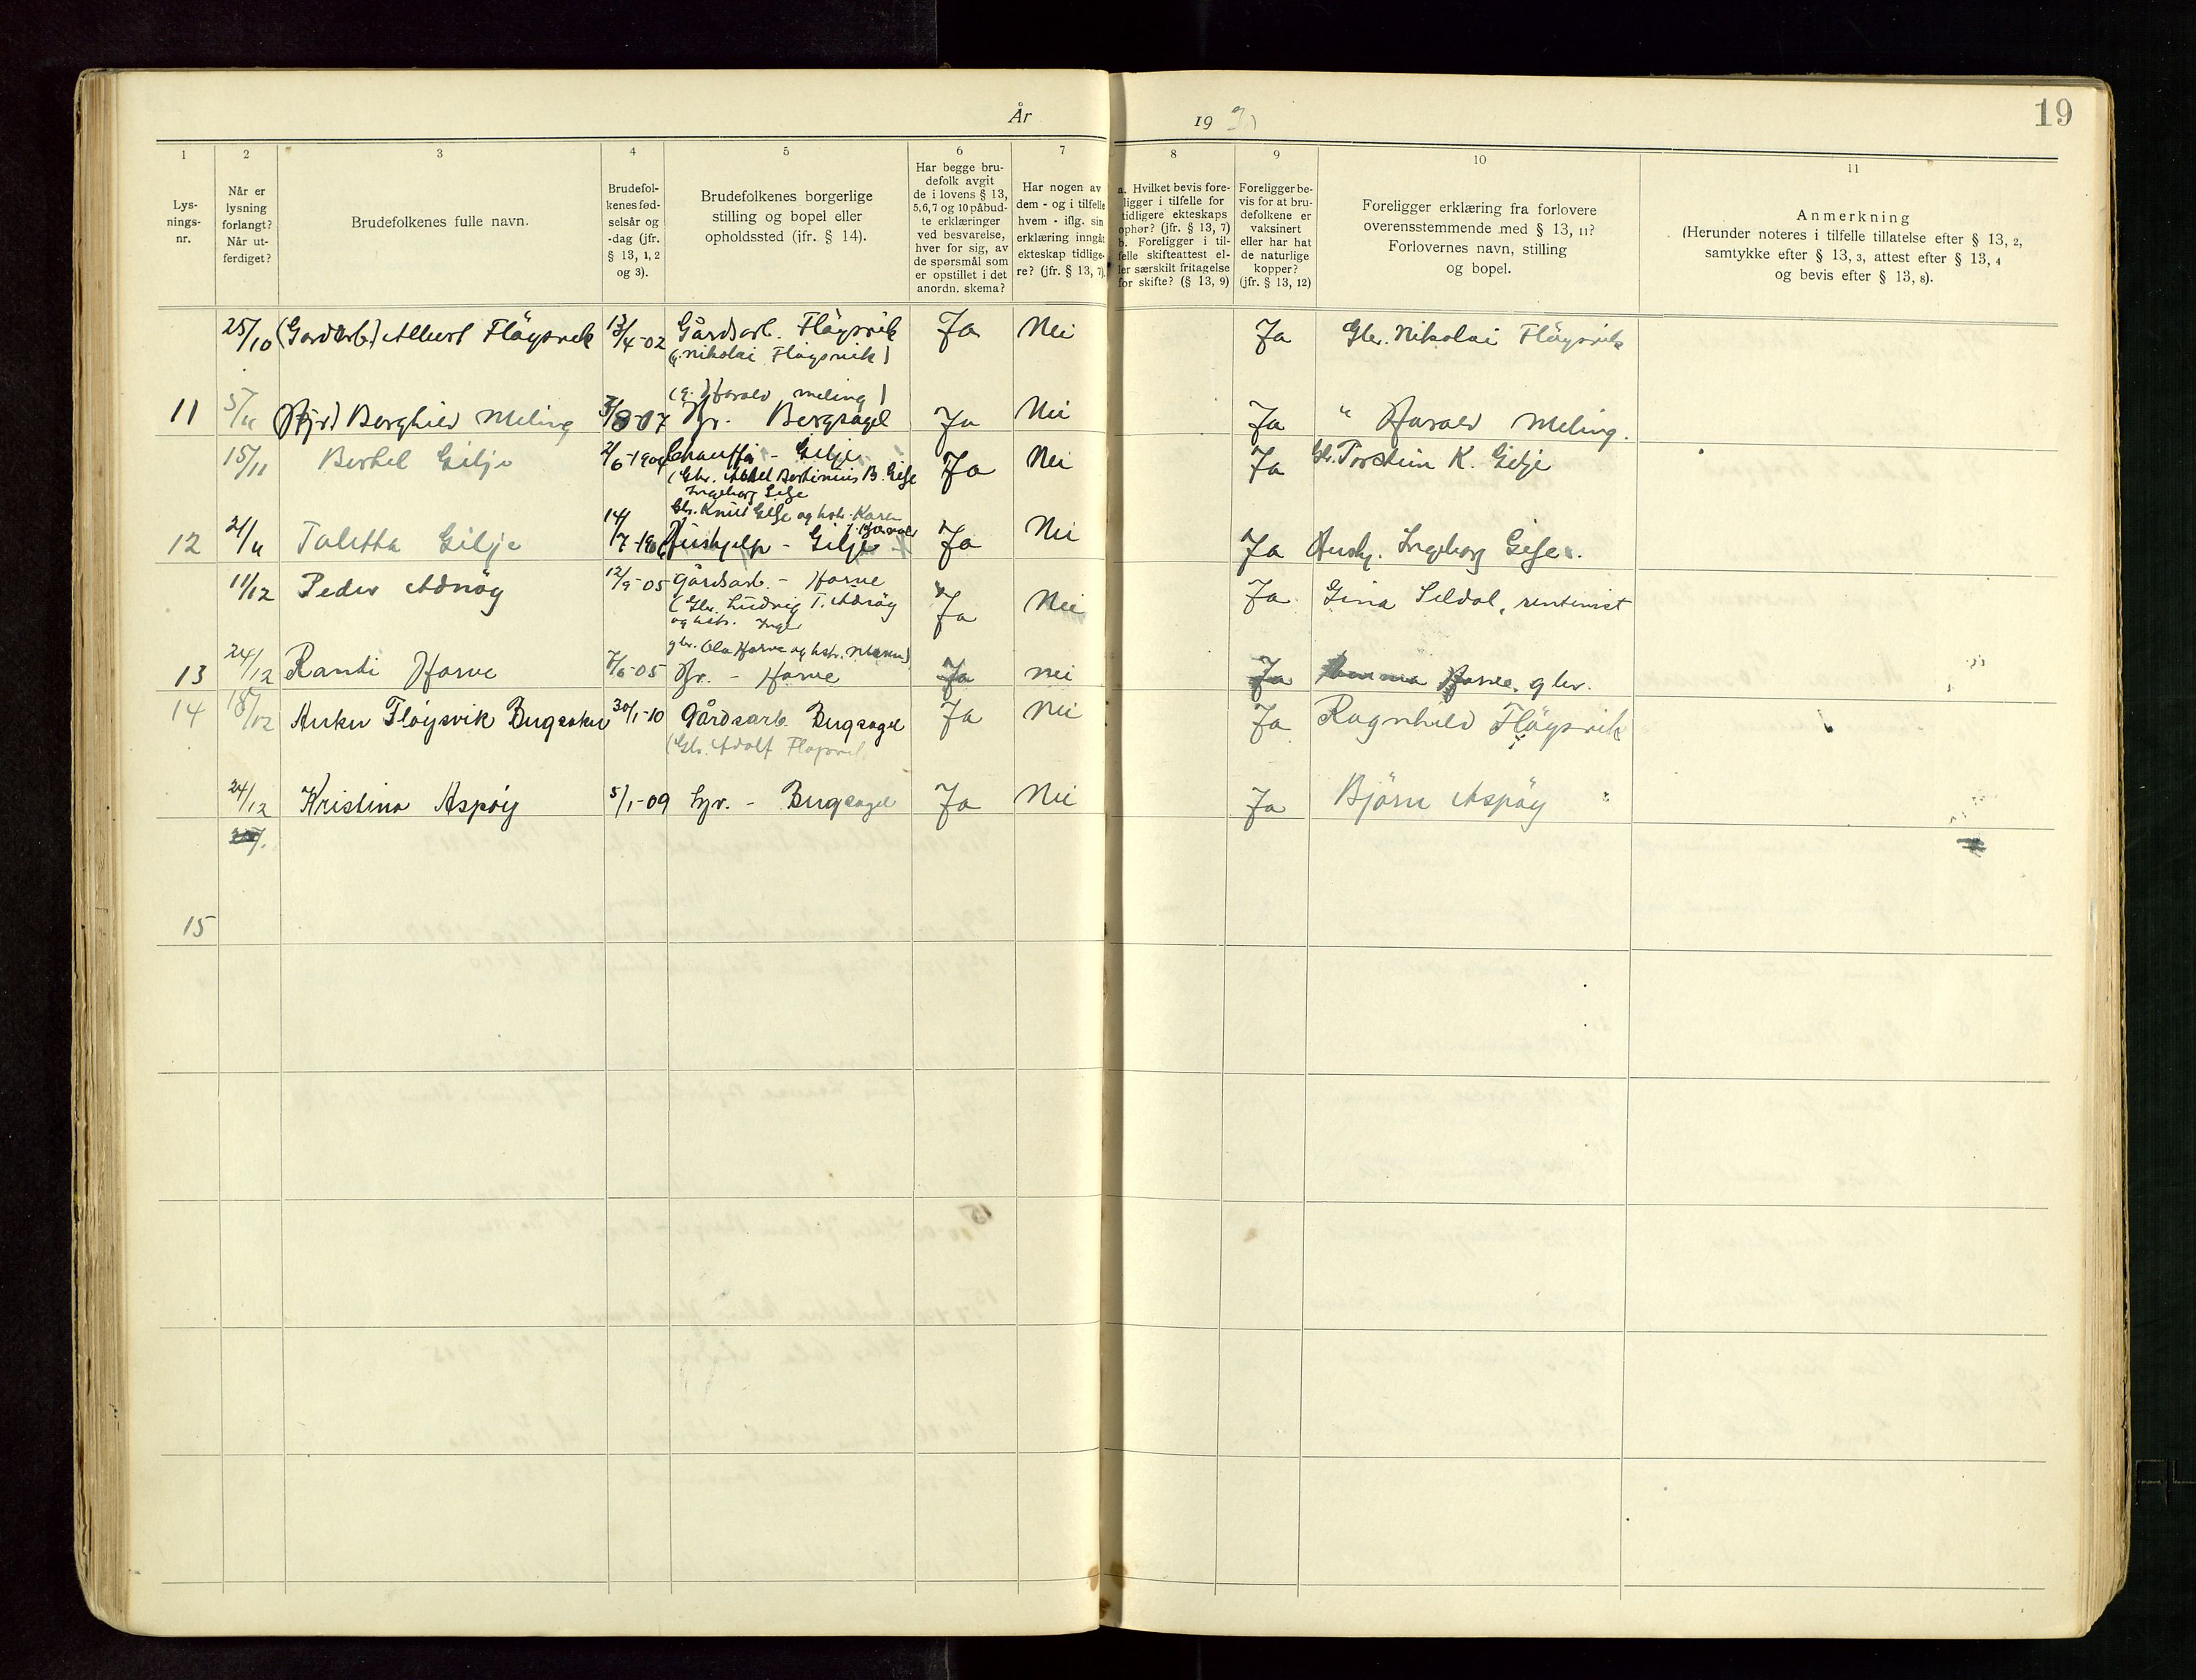 19
År 19 3
1
2
3
4
5
6
7
8
9
10
11
Lys-
nings-
nr.
Når er
lysning
forlangt?
Når ut-
ferdiget?
Brudefolkenes fulle navn.
Brudefol-
kenes fød-
selsår og
-dag (jfr.
§ 13, 1, 2
og 3).
Brudefolkenes borgerlige
stilling og bopel eller
opholdssted (jfr. § 14).
Har begge bru-
defolk avgit
de i lovens § 13,
5,6,7 og 10 påbud-
te erklæringer
ved besvarelse,
hver for sig, av
de spørsmål som
er opstillet i det
anordn. skema?
Har nogen av
dem - og i tilfelle
hvem - iflg. sin
erklæring inngåt
ekteskap tidlige-
re? (jfr. § 13, 7).
a. Hvilket bevis fore-
ligger i tilfelle for
tidligere ekteskaps
ophør? (jfr. § 13, 7)
b. Foreligger i til-
felle skifteattest el-
ler særskilt fritagelse
for skifte? (§ 13, 9)
Foreligger be-
vis for at bru-
defolkene er
vaksinert
eller har hat
de naturlige
kopper?
(jfr. § 13, 12)
Foreligger erklæring fra forlovere
overensstemmende med § 13, 11?
Forlovernes navn, stilling
og bopel.
Anmerkning
(Herunder noteres i tilfelle tillatelse efter § 13, 2,
samtykke efter § 13, 3, attest efter § 13, 4
og bevis efter § 13, 8).
25/10 (Gardarb.) Albert Fløysvik 13/4-02 Gårdsarb. Fløysvik Ja Nei Ja Gbr. Nikolai Fløysvik
(g. Nikolai Fløysvik)
(g. Harald Meling)
11 5/11 (Hjr.) Borghild Meling /8-07 Hjr. Bergsagel Ja Nei Ja " Harald Meling.
15/11 Bertel Gilje 2/6-190 Chauffør - Gilje Ja Nei Ja Gbr. Torstein K. Gilje
(Gbr. Bertinius B. Gilje
Ingeborg Gilje
Gbr. Knud Gilje og hstr. Karen
12 21/11 Taletta Gilje 14/7-190 Hushjelp - Gilje Ja Nei Ja Hushj. Ingeborg Gilje.
11/12 Peder Adnøy 12/9-05 Gårdsarb. - Horve Ja Nei Ja Gina Seldal, rentenist
(Gbr. Ludvig T. Adnøy
og hstr. Inger
gbr. Ola Horve og hstr.
13 24/12 Randi Horve 7/6-05 Hjr. - Horve Ja Nei Ja Horve. gbr.
14 18/12 Anker Fløysvik Bergsaker 30/1-10 Gårdsarb. Bergsagel Ja Nei Ja Ragnhild Fløysvik
(Gbr. Adolf Fløysvik
24/12 Kristina Aspøy 5/1-09 hjr. - Bergsagel Ja Nei Ja Bjørn Aspøy "
15